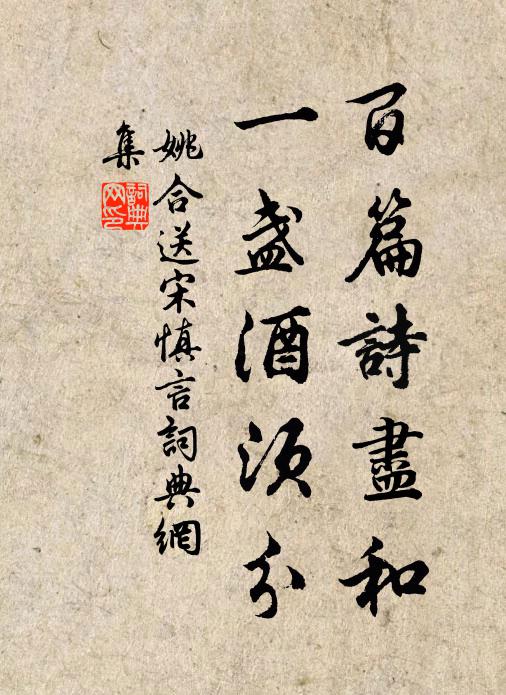 百篇詩盡和
一盞酒須分
姚合送宋慎言詞典網
集
詞典网印